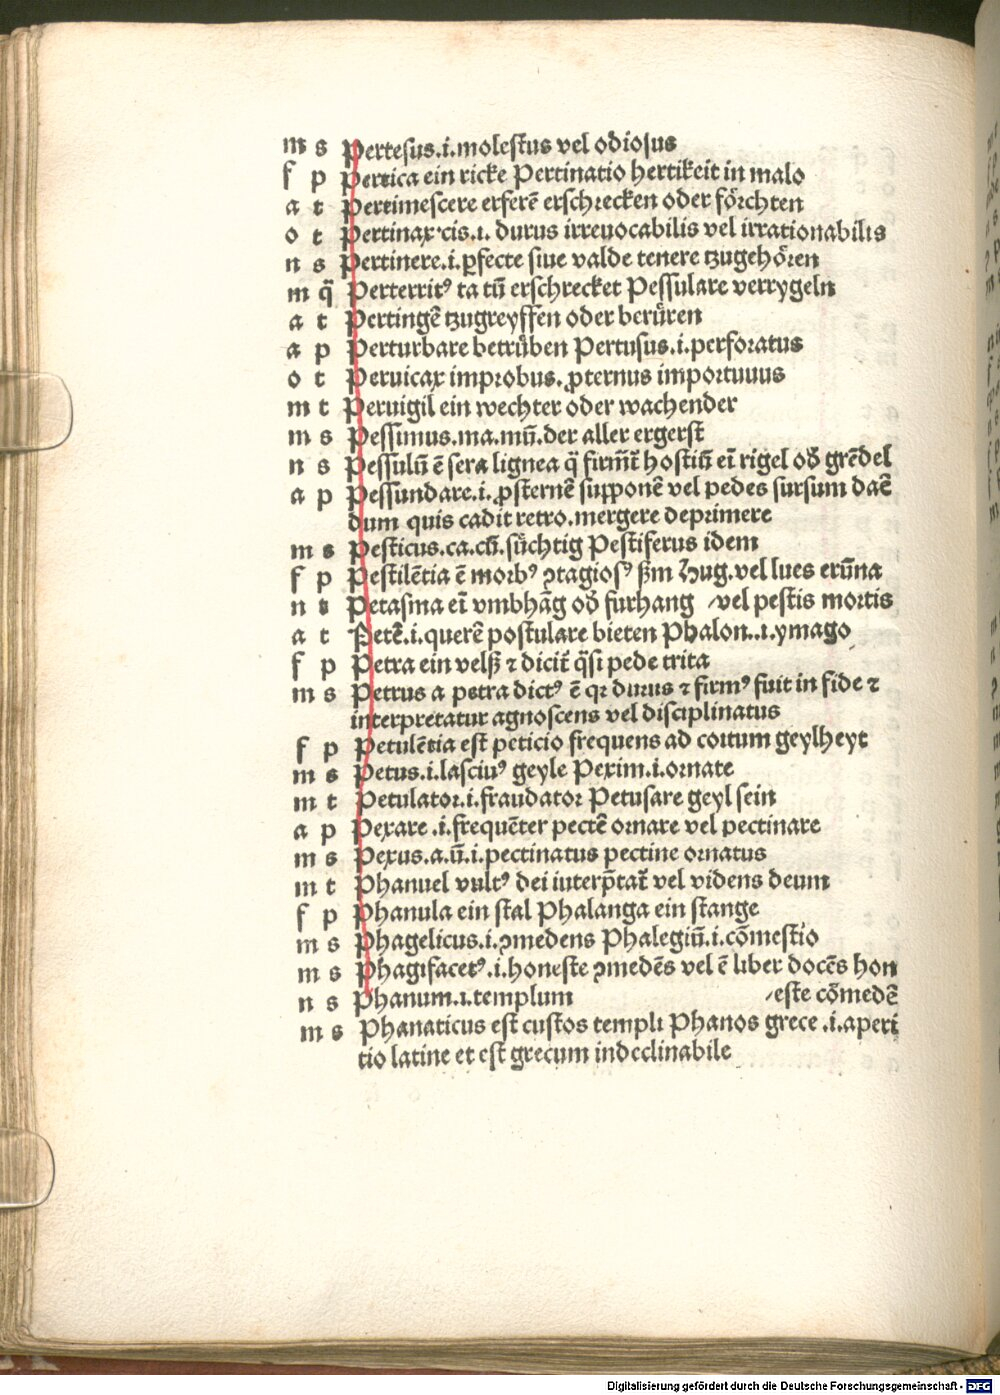 m s Pertesus.i.molestus vel odiosus
f p Pertica ein ricke Pertinatio hertikeit in malo
a t Pertimescere erferē erschrecken oder förchten
o t Pertinax cis.i. durus irreuocabilis vel irrationabilis
n s Pertinere.i.ꝑfecte siue valde tenere tzugehören
m q̈ Perterrit⁹ ta tū erschrecket Pessulare verrygeln
a t Pertingē tzugreyffen oder berüren
a p Perturbare betrüben Pertusus.i.perforatus
o t Peruicax improbus.ꝓternus importuuus
m t Peruigil ein wechter oder wachender
m s Pessimus.ma.mū.der aller ergerst
n s Pessulū ē sera lignea q̄ firmīt hostiū eī rigel od̄ grēdel
a p Pessundare.i.ꝓsternē supponē vel pedes sursum daē
dum quis cadit retro.mergere deprimere
m s Pesticus.ca.cū.süchtig Pestiferus idem
f p Pestilētia ē morb⁹ ꝯtagios⁹ ßm Hug.vel lues erūna
n t Petasma eī vmbhāg od̄ furhang /vel pestis mortis
a t Petē.i.querē postulare bieten Phalon..i.ymago
f p Petra ein velß ⁊ dicit̄ q̄si pede trita
m s Petrus a petra dict⁹ ē qꝛ durus ⁊ firm⁹ fuit in fide ⁊
interpretatur agnoscens vel disciplinatus
f p Petulētia est peticio frequens ad coitum geylheyt
m s Petus.i.lasciu⁹ geyle Pexim.i.ornate
m t Petulator.i.fraudator Petusare geyl sein
a p Pexare .i.frequēter pectē ornare vel pectinare
m s Pexus.a.ū.i.pectinatus pectine ornatus
m t Phanuel vult⁹ dei iuterp̄tat̄ vel videns deum
f p Phanula ein stal Phalanga ein stange
m s Phagelicus.i.ꝯmedens Phalegiū.i.cōmestio
m s Phagifacet⁹.i.honeste ꝯmedēs vel ē liber docēs hon
n s Phanum.i.templum /este cōmedē
m s Phanaticus est custos templi Phanos grece .i.aperi
tio latine et est grecum indeclinabile
Digitalisierung gefördert durch die Deutsche Forschungsgemeinschaft - DFG